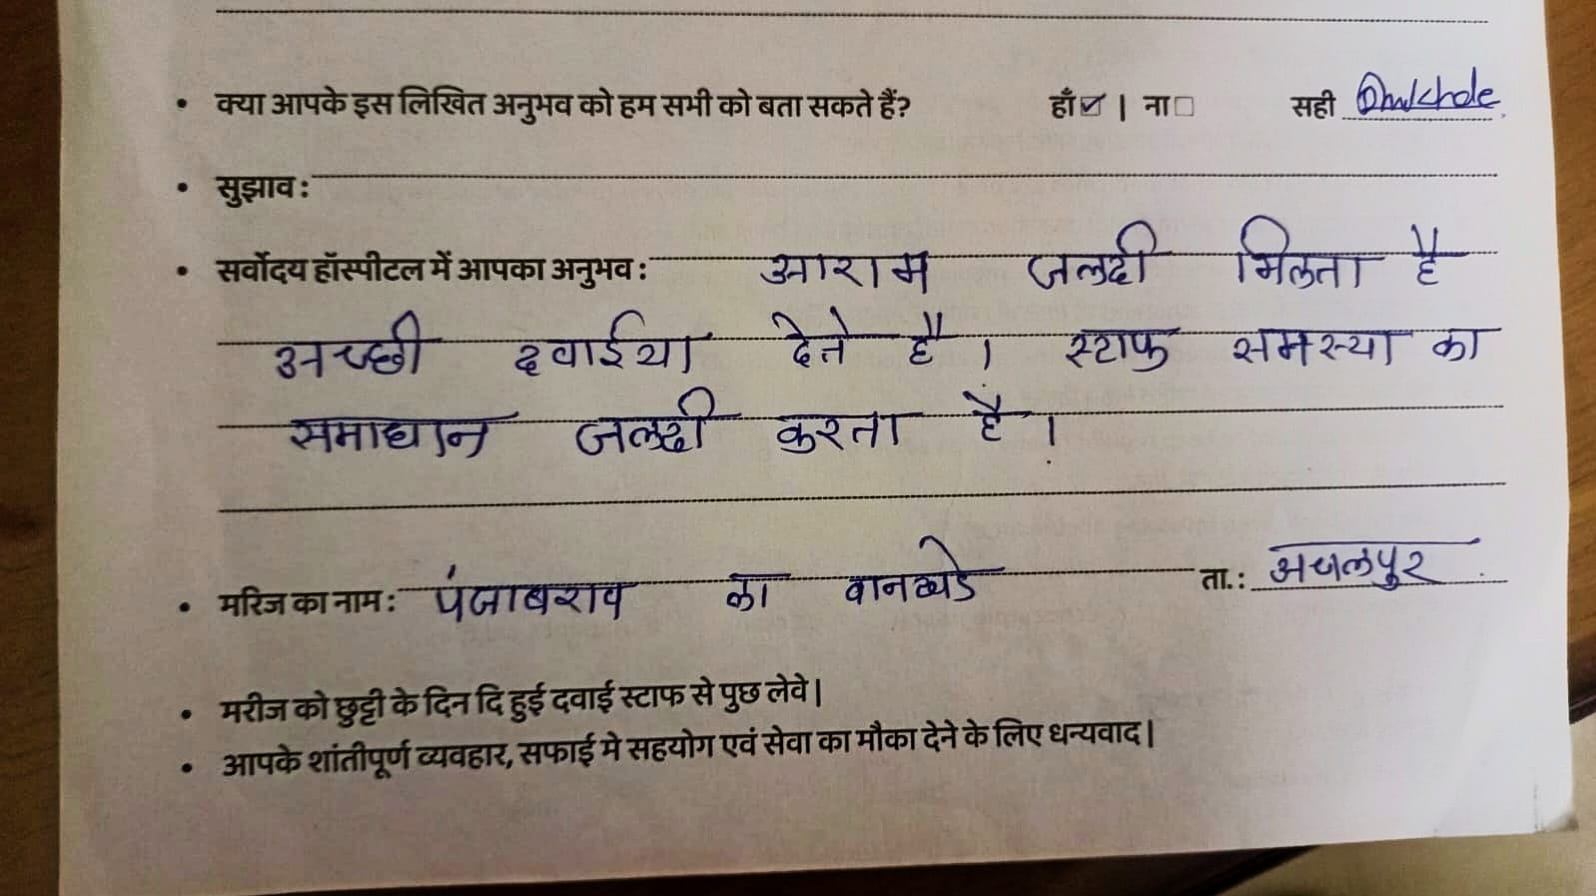 • क्या आपके इस लिखित अनुभव को हम सभी को बता सकते हैं? हाँ☑ | ना☐ सही
• सुझाव :
• सर्वोदय हॉस्पीटल में आपका अनुभव : आराम जलदी मिलता है
अच्छी दवाईया देते है । स्टाफ समस्या का
समाधान जलदी करता है ।
• मरिज का नाम : पंजाबराव का वानखडे ता.: अचलपुर
• मरीज को छुट्टी के दिन दि हुई दवाई स्टाफ से पुछ लेवे |
• आपके शांतीपूर्ण व्यवहार, सफाई मे सहयोग एवं सेवा का मौका देने के लिए धन्यवाद |